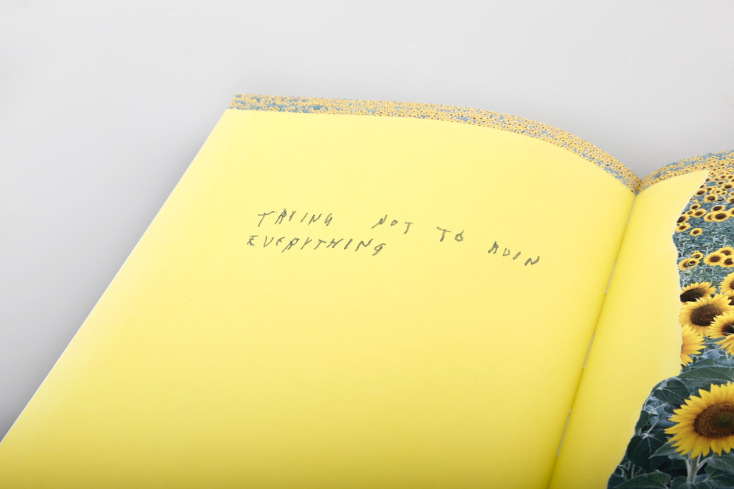 TRYING NOT TO RUIN
EVERYTHING